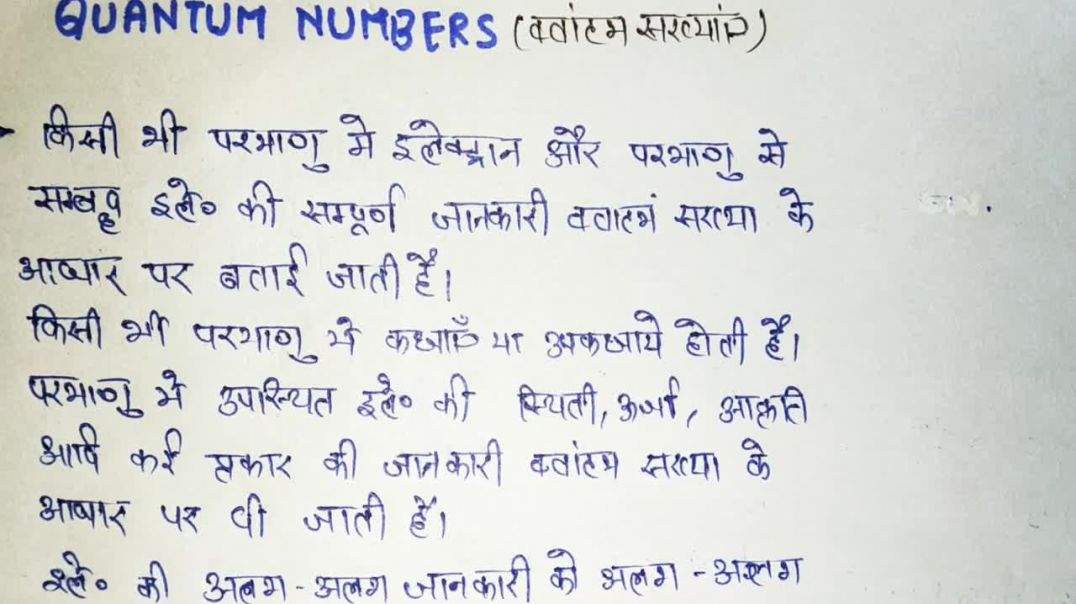 QUANTUM NUMBERS (क्वांटम संख्याएं)
किसी भी परमाणु मे इलेक्ट्रान और परमाणु से
सम्बद्ध इले० की सम्पूर्ण जानकारी क्वाटमं सख्या के
आधार पर बताई जाती है।
किसी भी परमाणु मे कक्षाएँ या उपकक्षाये होती है।
परमाणु मे उपस्थित इले० की स्थिती, ऊर्जा, आकृति
आदि कई प्रकार की जानकारी क्वांटम सख्या के
आधार पर दी जाती है।
इले० की अलग-अलग जानकारी को अलग-अलग